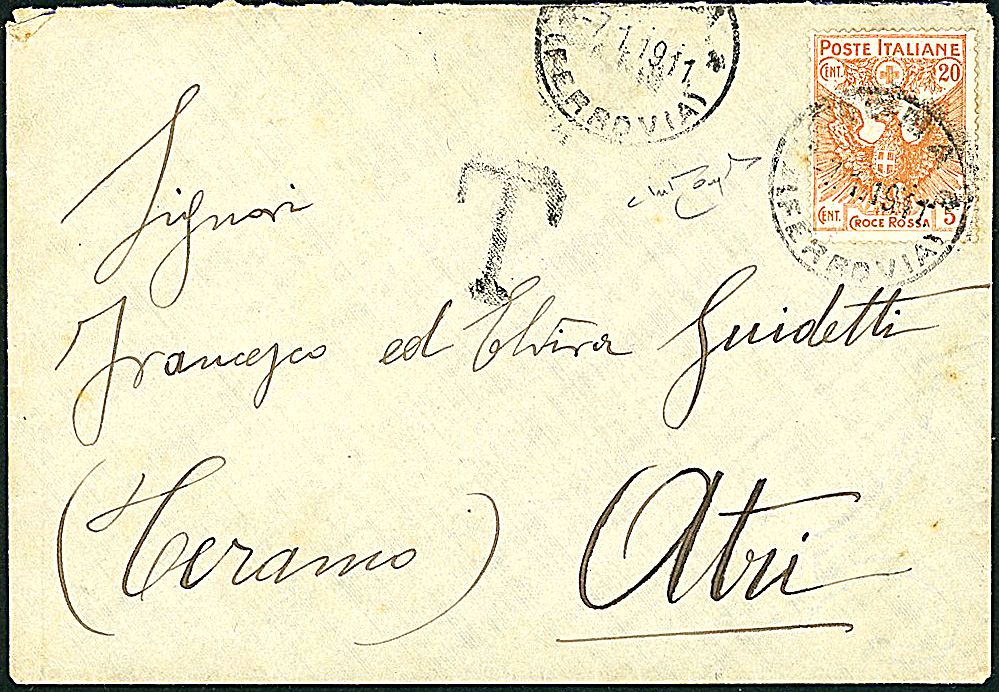 -7.1.19 17
(FERROVIA)
POSTE ITALIANE
CENT. 20
CENT. 5
CROCE ROSSA
(FERROVIA)
T
Signori
Francesco ed Elvira Guidetti
(Teramo) Atri